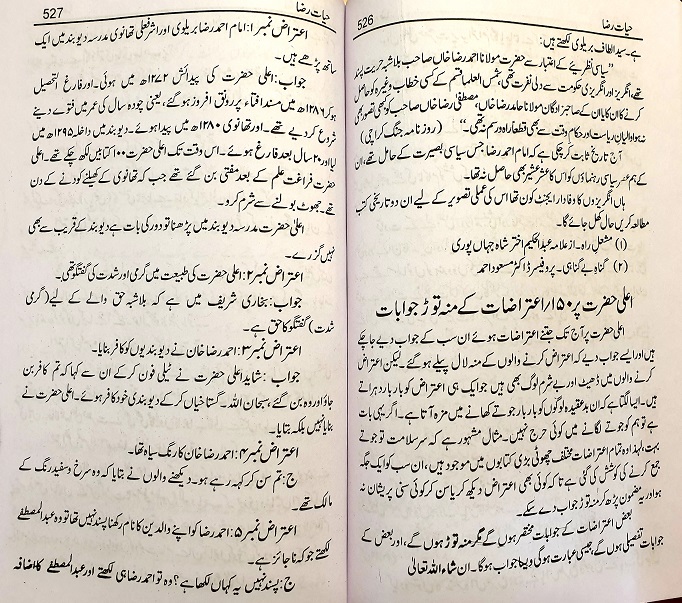 حیات رضا
526
ہے۔ سید الطاف بریلوی لکھتے ہیں:
"سیاسی نظریئے کے اعتبار سے حضرت مولانا احمد رضا خاں صاحب بلاشبہ حریت پسند
تھے، انگریز اور انگریزی حکومت سے دلی نفرت تھی، شمس العلماء قسم کے کسی خطاب وغیرہ کو حاصل
کرنے کا ان کا یا ان کے صاحبزادگان مولانا حامد رضا خاں، مصطفٰی رضا خاں صاحب کو کبھی تصور بھی
نہ ہوا والیان ریاست اور حکام وقت سے بھی قطعاً راہ ورسم نہ تھی۔" (روزنامہ جنگ کراچی)
آج تاریخ ثابت کر چکی ہے کہ امام احمد رضا جس سیاسی بصیرت کے حامل تھے، ان
کے ہم عصر سیاسی رہنماؤں کو اس کا عشر عشیر بھی حاصل نہ تھا۔
ہاں انگریزوں کا وفادار ایجنٹ کون تھا اس کی عملی تصویر کے لیے ان دو تاریخی کتب
مطالعہ کریں حال کھل جائے گا۔
(۱) مشعل راہ۔ از علامہ عبدالحکیم اختر شاہ جہاں پوری
(۲) گناہ بے گناہی۔ پروفیسر ڈاکٹر مسعود احمد
اعلیٰ حضرت پر ۱۵۰ اعتراضات کے منہ توڑ جوابات
اعلیٰ حضرت پر آج تک جتنے اعتراضات ہوئے ان سب کے جواب دیے جا چکے
ہیں اور ایسے جواب دیے کہ اعتراض کرنے والوں کے منہ لال پیلے ہو گئے۔ لیکن اعتراض
کرنے والوں میں ڈھیٹ اور بے شرم لوگ بھی ہیں جو ایک ہی اعتراض کو بار بار دہراتے
ہیں۔ ایسا لگتا ہے کہ ان بدعقیدہ لوگوں کو بار بار جوتے کھانے میں مزہ آتا ہے۔ اگر یہی بات
ہے تو ہم کو جوتے لگانے میں کوئی حرج نہیں۔ مثال مشہور ہے کہ سر سلامت تو جوتے
بہت، لہٰذا وہ تمام اعتراضات مختلف چھوٹی بڑی کتابوں میں موجود ہیں، ان سب کو ایک جگہ
جمع کرنے کی کوشش کی گئی ہے تاکہ کوئی بھی اعتراض دیکھ کر یا سن کر کوئی سنی پریشان نہ
ہو اور یہ مضمون پڑھ کر منہ توڑ جواب دے سکے۔
بعض اعتراضات کے جوابات مختصر ہوں گے مگر منہ توڑ ہوں گے، اور بعض کے
جوابات تفصیلی ہوں گے، جیسی عبارت ہوگی ویسا جواب ہوگا۔ ان شاء اللہ تعالیٰ
527
حیات رضا
اعتراض نمبر ۱: امام احمد رضا بریلوی اور اشرفعلی تھانوی مدرسہ دیوبند میں ایک
ساتھ پڑھے ہیں۔
جواب: اعلیٰ حضرت کی پیدائش ۱۲۷۲ھ میں ہوئی۔ اور فارغ التحصیل
ہو کر ۱۲۸۶ھ میں مسند افتاء پر رونق افروز ہو گئے، یعنی چودہ سال کی عمر میں فتوے دینے
شروع کر دیے تھے۔ اور تھانوی ۱۲۸۰ھ میں پیدا ہوئے۔ دیوبند میں داخلہ ۱۲۹۵ھ میں
لیا اور ۲۰ سال بعد فارغ ہوئے۔ اس وقت تک اعلیٰ حضرت ۱۰۰ کتابیں لکھ چکے تھے۔ اعلیٰ
حضرت فراغت علم کے بعد مفتی بن گئے تھے جب کہ تھانوی کے کھیلنے کودنے کے دن
تھے۔ جھوٹ بولنے سے شرم کرو۔
اعلیٰ حضرت مدرسہ دیوبند میں پڑھنا تو دور کی بات ہے دیوبند کے قریب سے بھی
نہیں گزرے۔
اعتراض نمبر ۲: اعلیٰ حضرت کی طبیعت میں گرمی اور شدت کی گفتگو تھی۔
جواب: بخاری شریف میں ہے کہ بلاشبہ حق والے کے لیے (گرمی
شدت) گفتگو کا حق ہے۔
اعتراض نمبر ۳: احمد رضا خان نے دیوبندیوں کو کافر بنایا۔
جواب: شاید اعلیٰ حضرت نے ٹیلی فون کر کے ان سے کہا کہ تم کافر بن
جاؤ اور وہ بن گئے، سبحان اللہ۔ گستاخیاں کر کے دیوبندی خود کافر ہوئے۔ اعلیٰ حضرت نے
بنایا نہیں بلکہ بتایا۔
اعتراض نمبر ۴: احمد رضا خان کا رنگ سیاہ تھا۔
ج: تم سن کر کہہ رہے ہو۔ دیکھنے والوں نے بتایا کہ وہ سرخ و سفید رنگ کے
مالک تھے۔
اعتراض نمبر ۵: احمد رضا کو اپنے والدین کا نام رکھنا پسند نہیں تھا تو وہ عبدالمصطفٰے
لکھتے جو کہ ناجائز ہے۔
ج: پسند نہیں یہ کہاں لکھا ہے؟ وہ تو احمد رضا ہی لکھتے اور عبدالمصطفٰے کا اضافہ